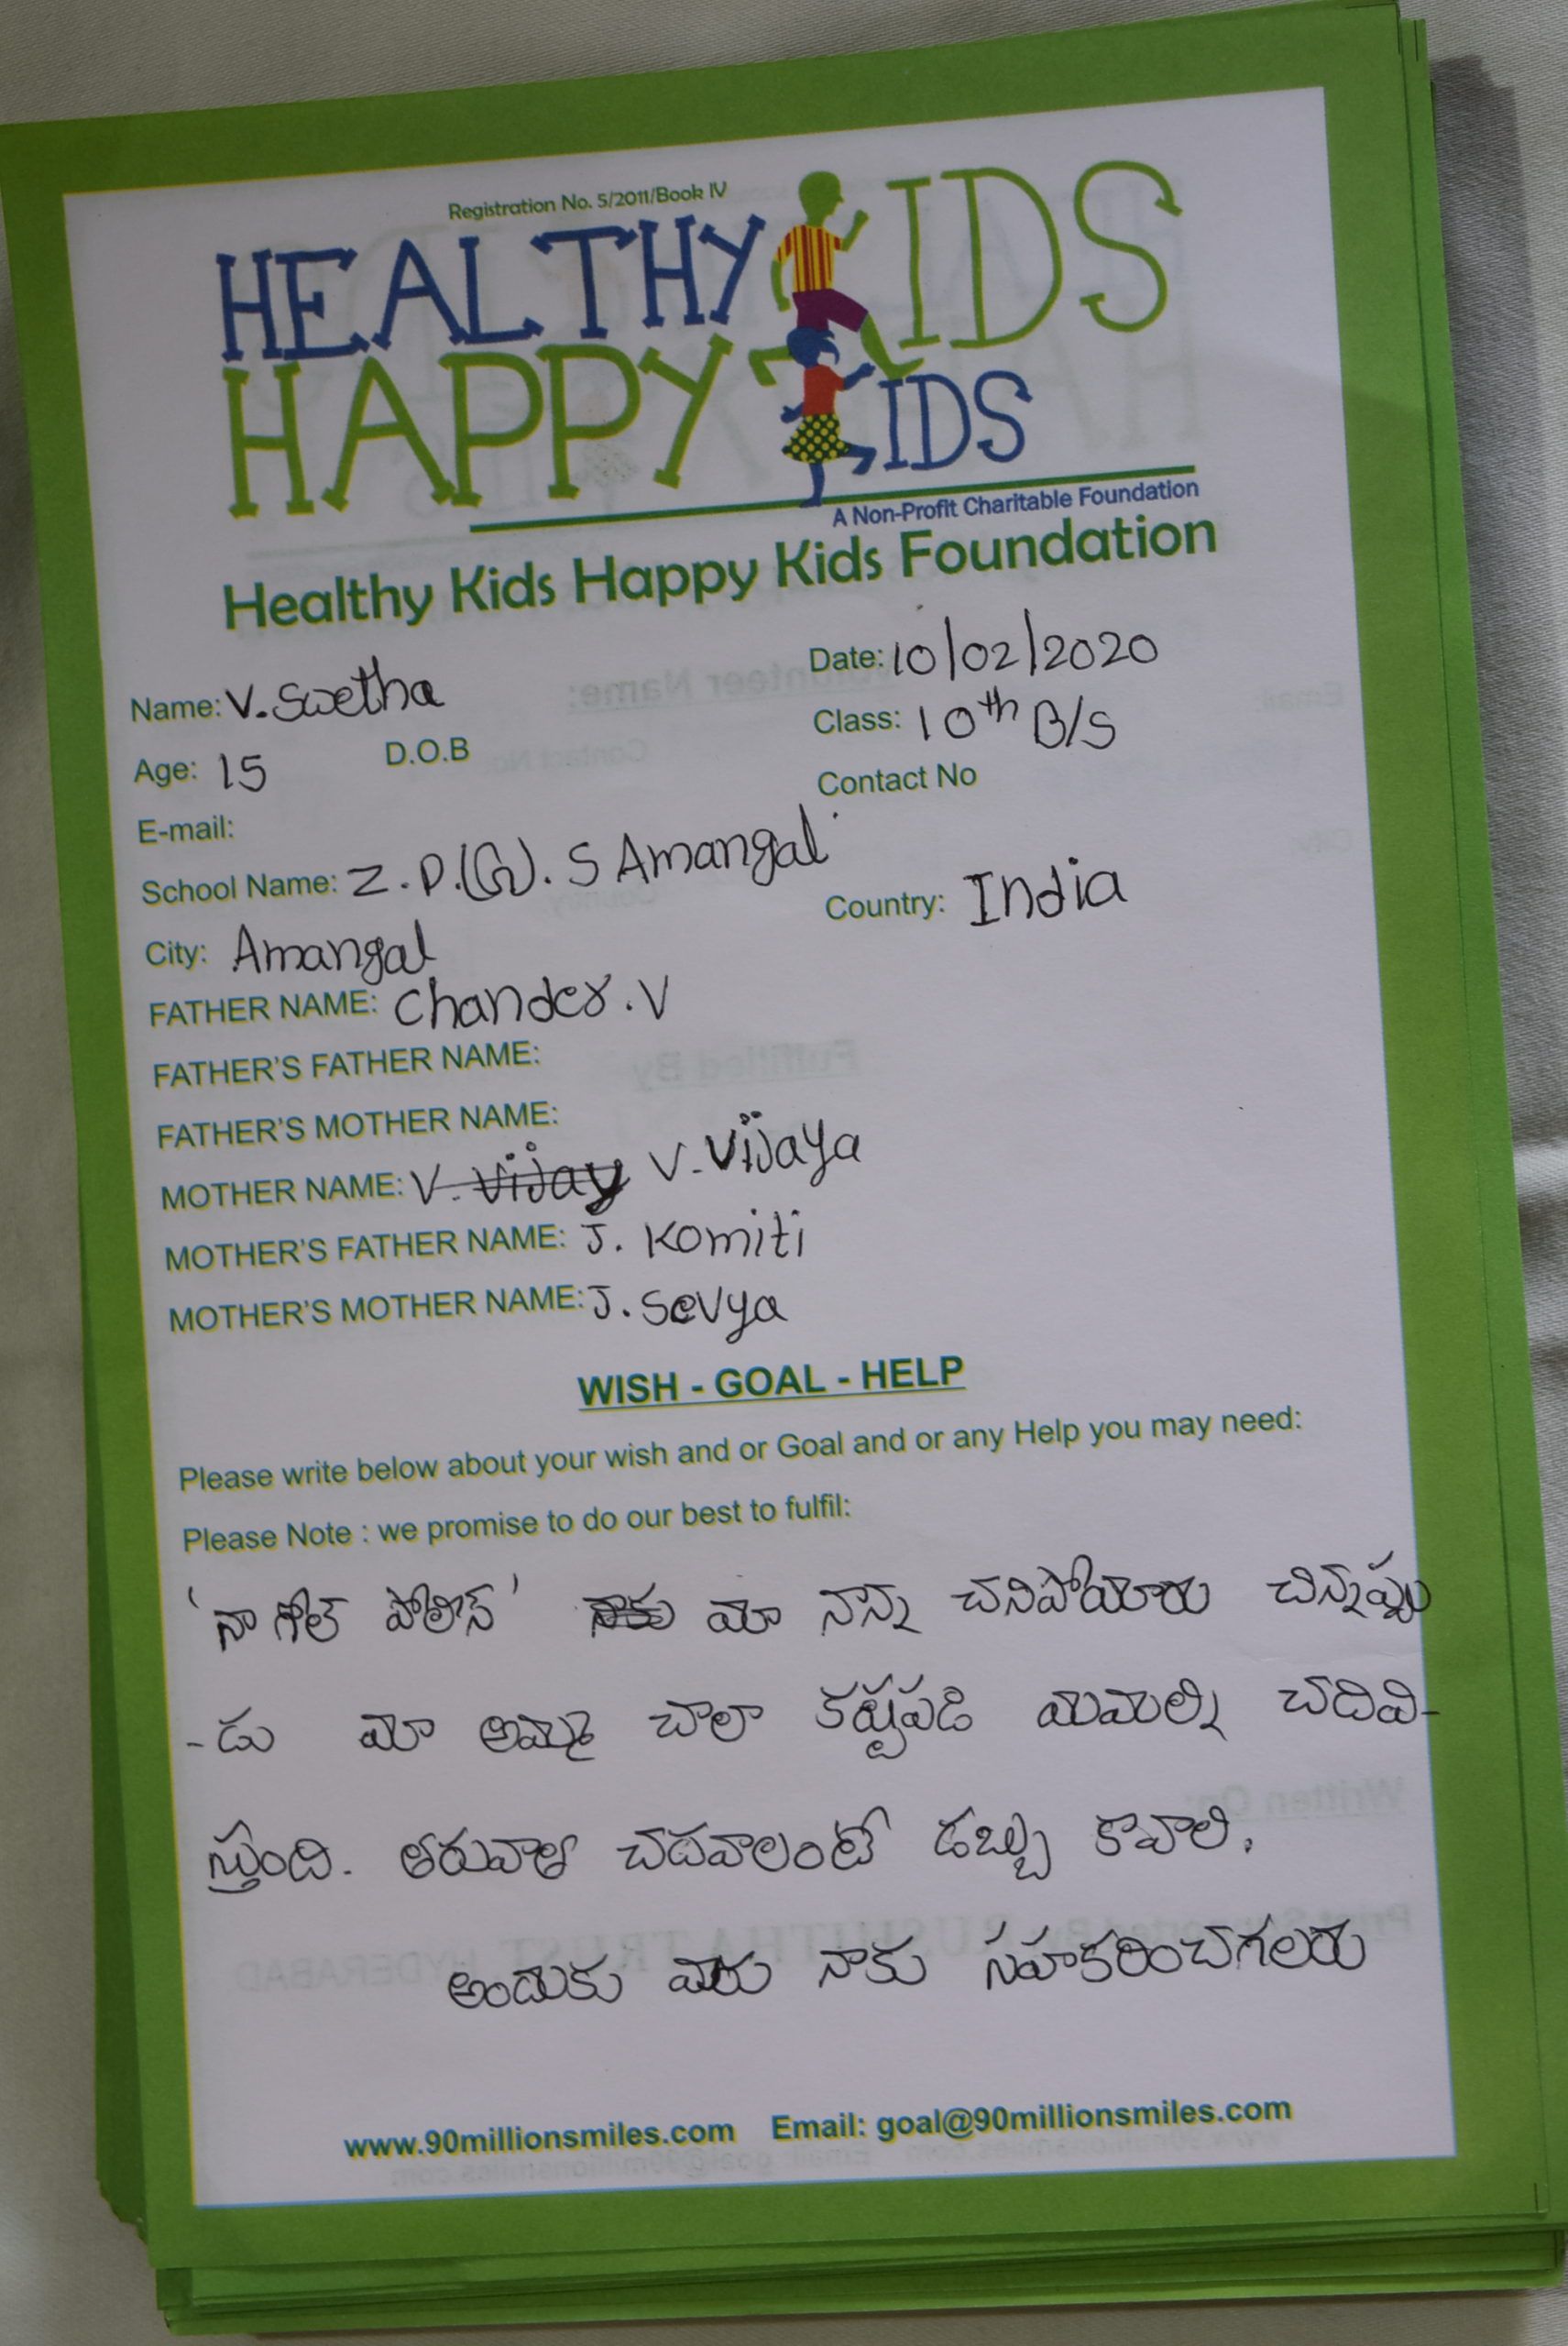 Registration No. 5/2011/Book IV
HEALTHY KIDS
HAPPY KIDS
A Non-Profit Charitable Foundation
Healthy Kids Happy Kids Foundation
Name: V. Swetha Date: 10/02/2020
Age: 15 D.O.B Class: 10th B/S
E-mail: Contact No
School Name: Z.P.(G).S Amangal
City: Amangal Country: India
FATHER NAME: Chander.V
FATHER'S FATHER NAME:
FATHER'S MOTHER NAME:
MOTHER NAME: V. Vijay V. Vijaya
MOTHER'S FATHER NAME: J. Komiti
MOTHER'S MOTHER NAME: J. Sevya
WISH - GOAL - HELP
Please write below about your wish and or Goal and or any Help you may need:
Please Note : we promise to do our best to fulfil:
'నా గోల్ పోలీస్' మా నాన్న చనిపోయారు చిన్నప్పు
-డు మా అమ్మా చాలా కష్టపడి మమల్ని చదివి-
స్తుంది. తరువాత చదవాలంటే డబ్బు కావాలి.
అందుకు మీరు నాకు సహకరించగలరు
www.90millionsmiles.com Email: goal@90millionsmiles.com